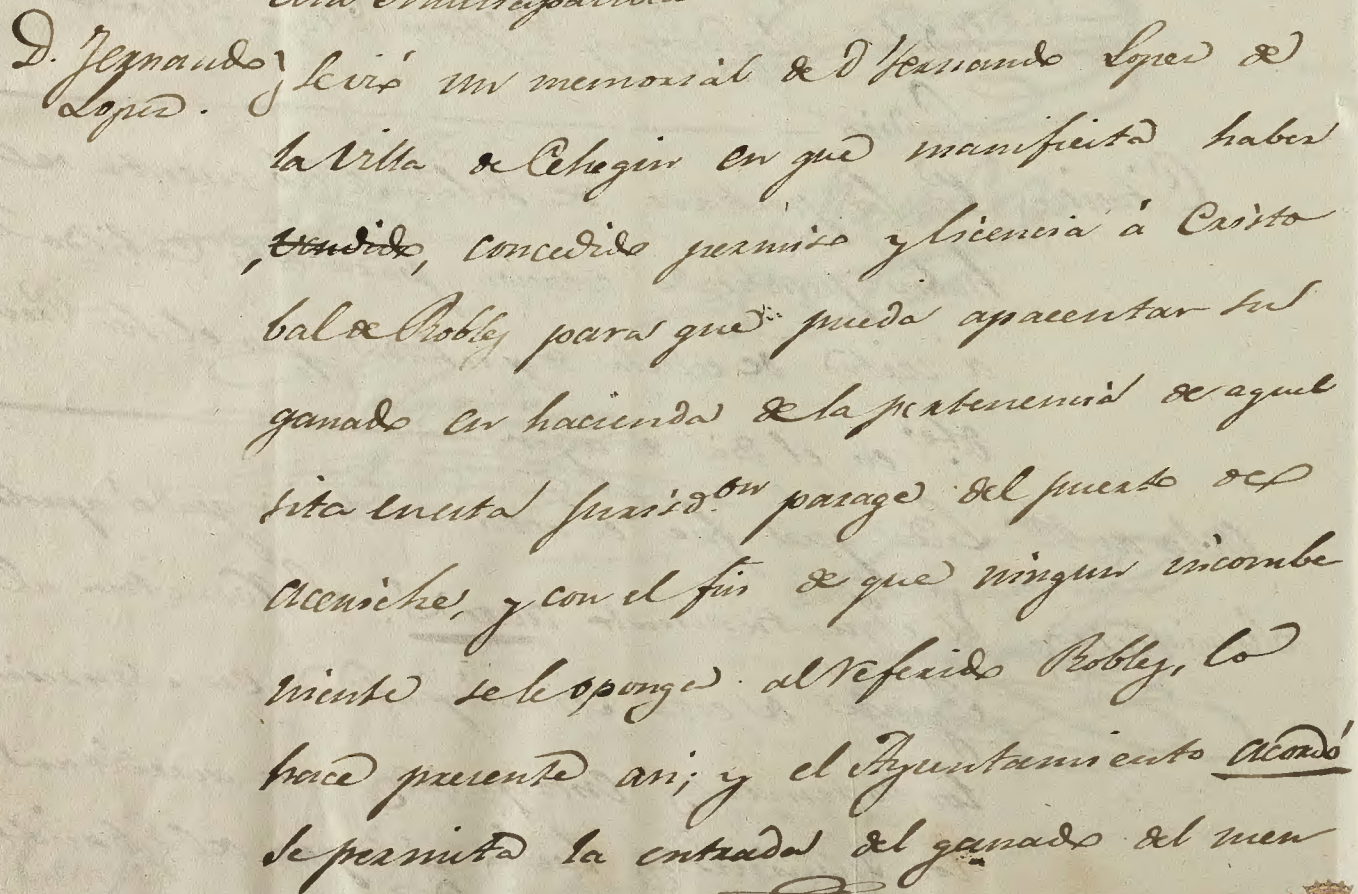 D. Fernando
Lopez.
Se vió un memorial de D. Fernando Lopez de
la Villa de Cehegin en que manifiesta haber
vendido, concedido permiso y licencia á Cristo
bal de Robles para que pueda apacentar su
ganado en hacienda de la pertenencia de aquel
sita en esta jurisd.on parage del puerto de
Aceniche, y con el fin de que ningun incombe
niente se le oponga al referido Robles, lo
hace presente asi; y el Ayuntamiento acordó
se permita la entrada del ganado del men